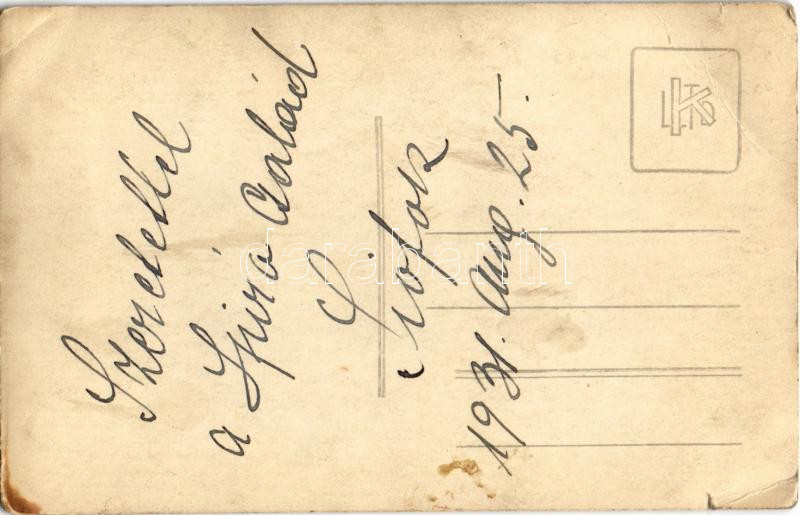 Szeretettel
a Spiró Család
Siófok
1931. Aug. 25.
darabanth